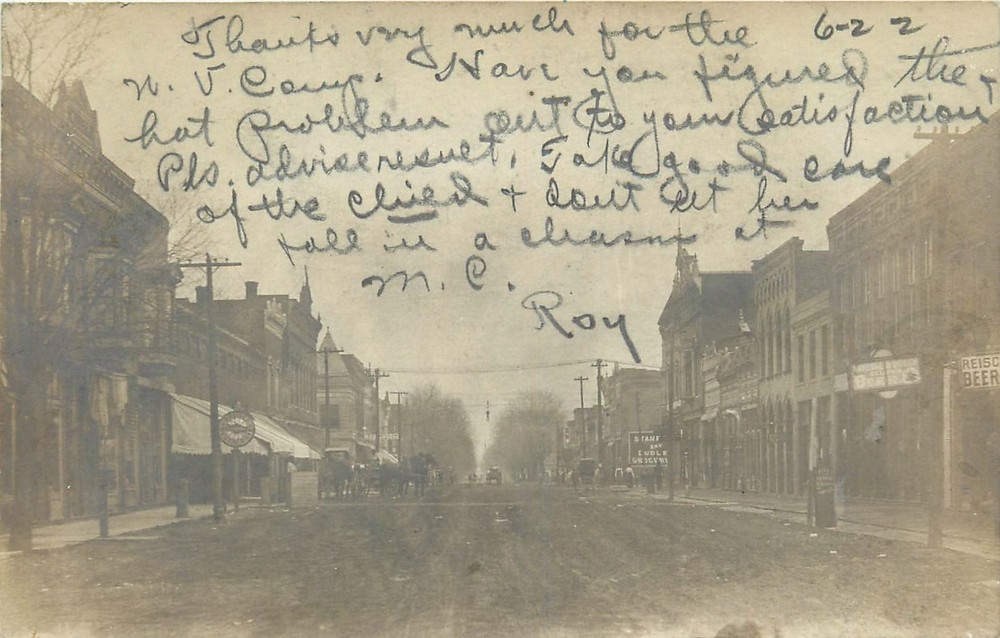 6-22
Thanks very much for the
N. Y. Camp. Have you figured the
hat problem out to your satisfaction?
Pls. advise result. Take good care
of the child + don't let her
fall in a chasm at
M. C.
Roy
REISC
BEER
STAFF
AND
GROCERY